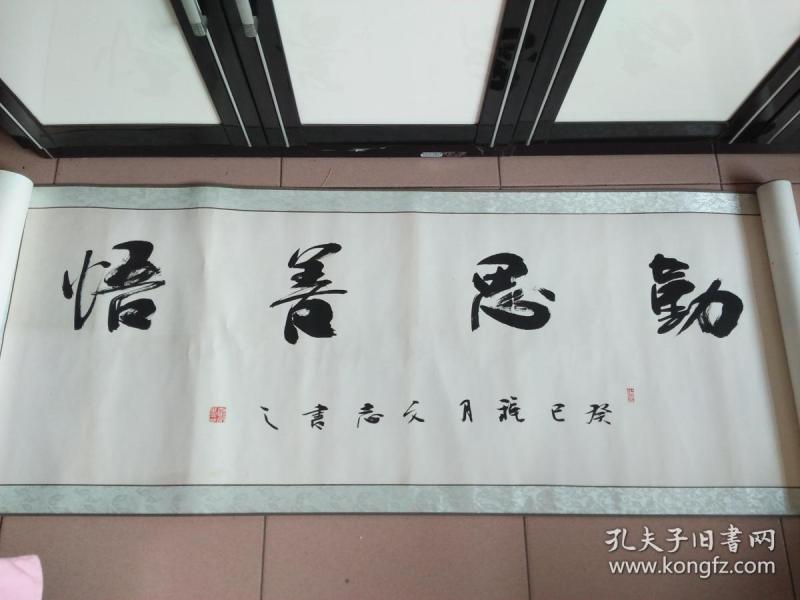 勤思善悟
癸巳 月文志書之
孔夫子旧書网
www.kongfz.com